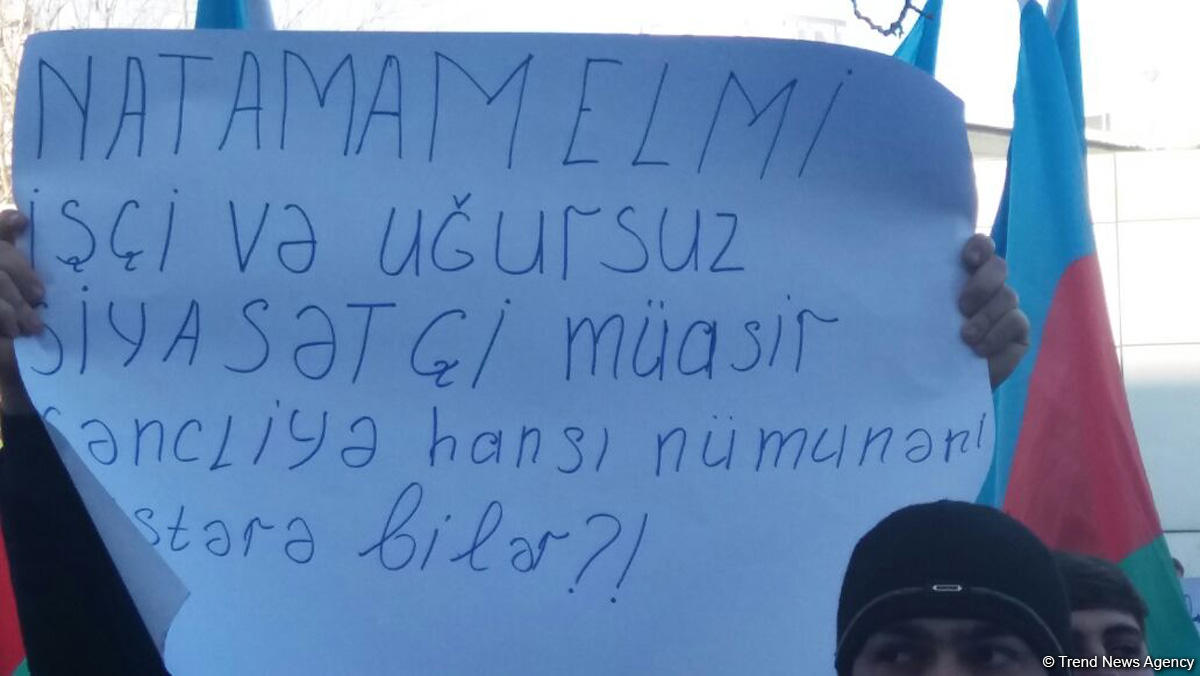 NATAMAM ELMİ
İŞÇİ VƏ UĞURSUZ
SİYASƏTÇİ müasir
gəncLİYƏ hansı nümunəni
stərə bilər?!
© Trend News Agency